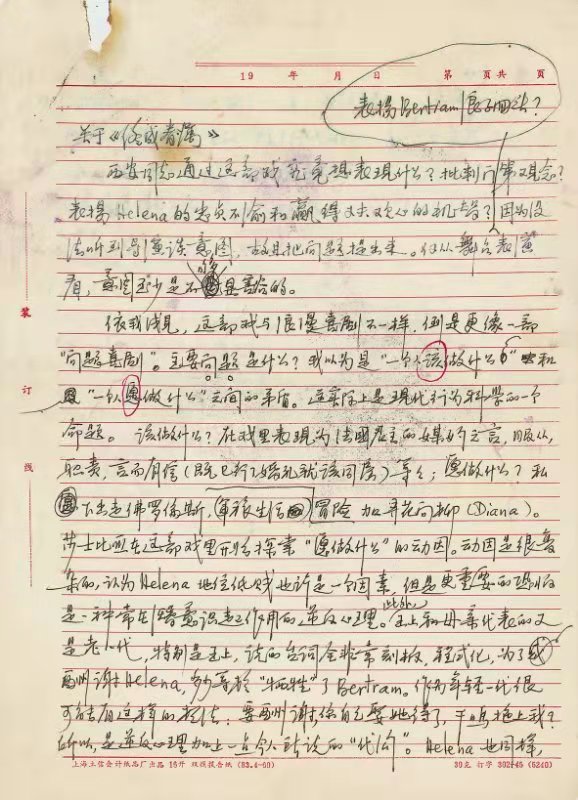 19 年 月 日 第 页共 页
表扬Bertram浪子回头？
关于《终成眷属》
西安同志通过这部戏究竟想表现什么？批判门第观念？
表扬Helena的忠贞不俞和赢得丈夫欢心的机智？因为没
法听到导演谈意图，故且把问题提出来。但从舞台表演
看，意图至少是不够是的。
依我浅见，这部戏与浪漫喜剧不一样，倒是更像一部
“问题喜剧”。主要问题是什么？我以为是“一个人该做什么”和
“一个人愿做什么”之间的矛盾。这实际上是现代行为科学的一个
命题。该做什么？在戏里表现为法國君主的媒妁之言，服从，
职责，言而有信（既已行了婚礼就该同房）等々；愿做什么？私
下出走佛罗伦斯，军旅生活冒险加寻花问柳（Diana）。
莎士比亚在这部戏里开始探索“愿做什么”的动因。动因是很复
杂的，认为Helena地位低贱也许是一个因素，但是更重要的恐怕
是一种常在暗意识起作用的逆反心理。此外，国王和母亲代表的又
是老一代，特别是国王，说的台词全非常刻板，程式化，为了
酬谢Helena，等于“牺牲”了Bertram。作为年轻一代很
可能有这样的想法：要酬谢你自己娶她得了，干吗拖上我？
所以，是逆反心理加上一点今人所说的“代沟”。Helena也同样，
装
订
线
上海立信会计纸品厂出品 16开 双线报告纸 (83.4-60)
30克 订字 302-45 (5240)